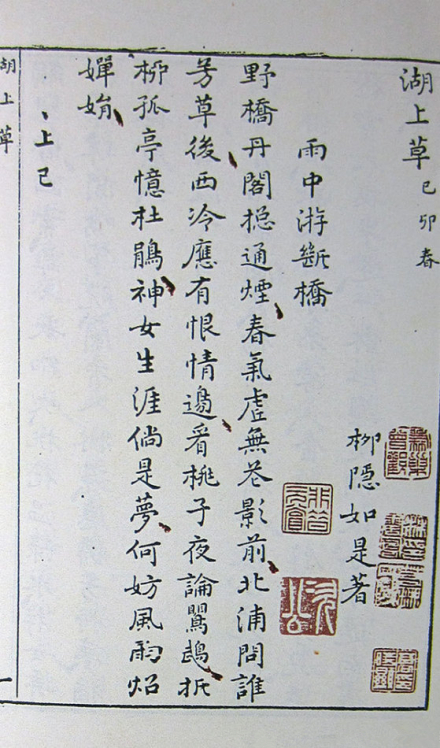 湖上草己卯春
柳隱如是著
雨中游斷橋
野橋丹閣摠通煙春氣虛無花影前北浦問誰
芳草後西冷應有恨情邊看桃子夜論鸎鴂折
柳孤亭憶杜鵑神女生涯倘是夢何妨風雨炤
嬋娟
上巳
湖上草